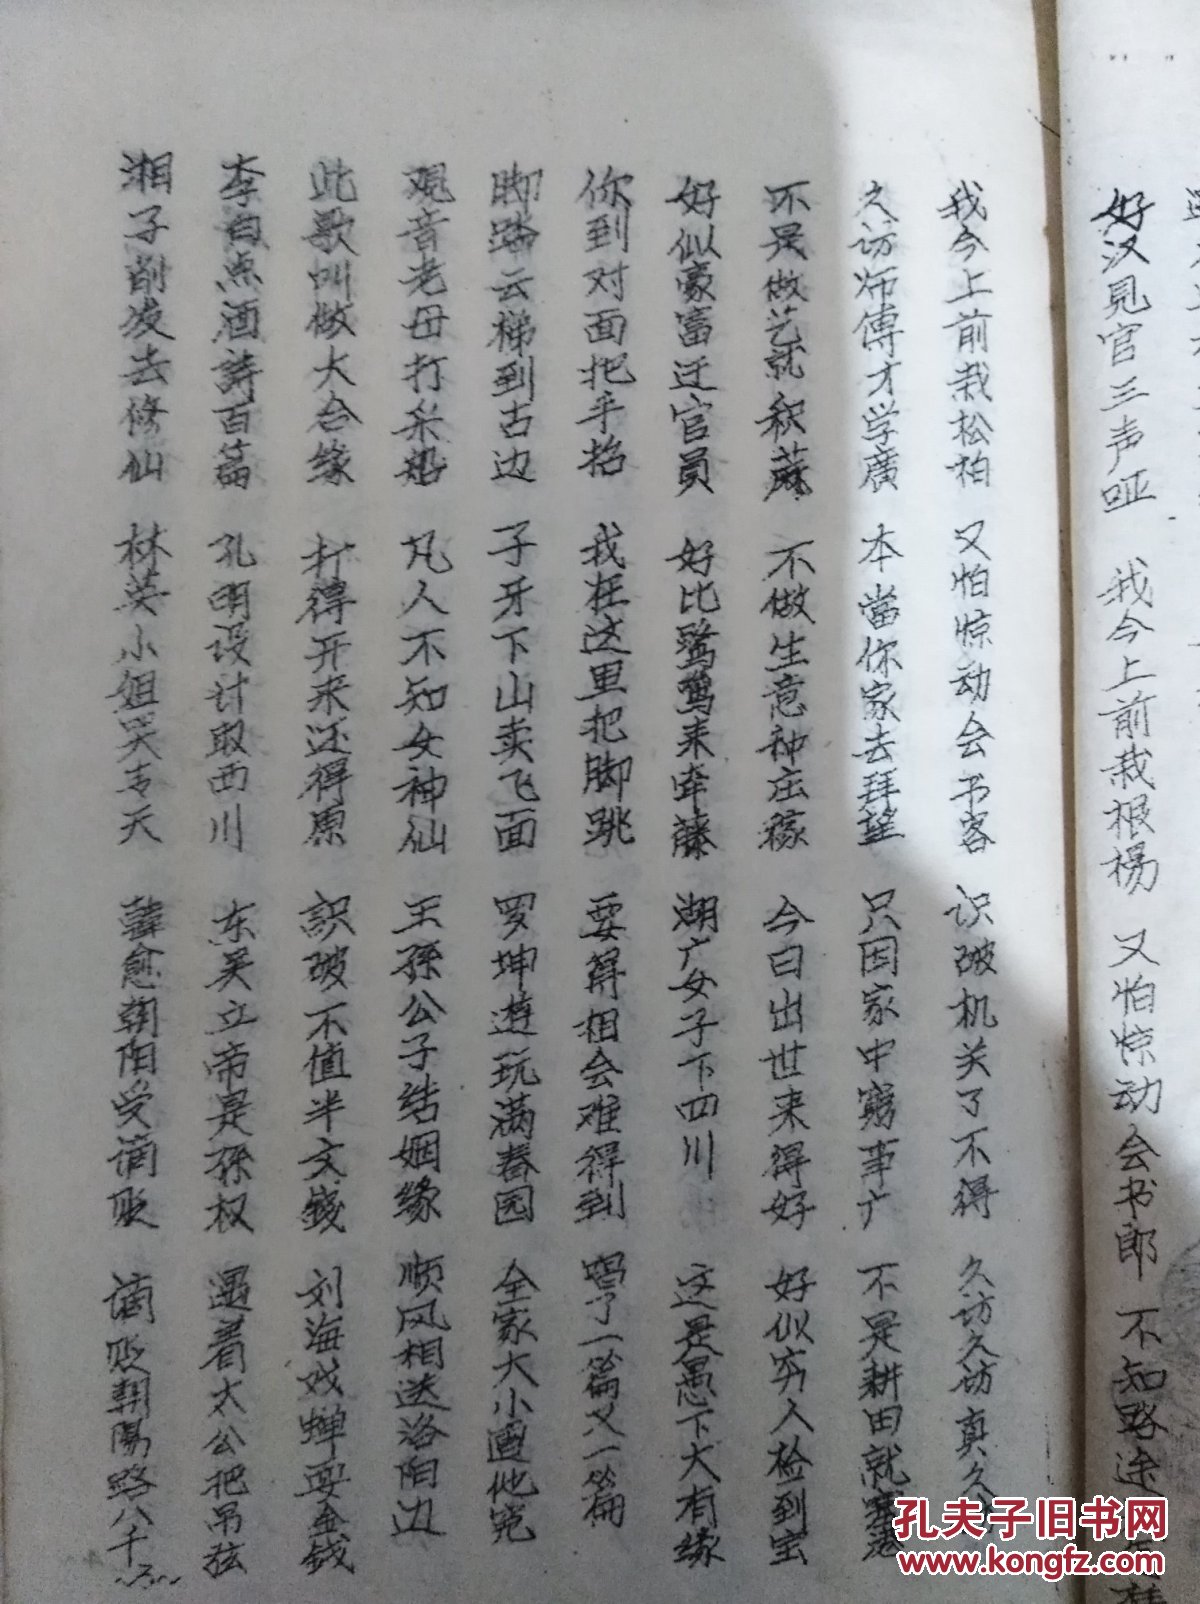 好汉見官三声哑 我今上前栽根楊 又怕惊动会书郎 不知路途
我今上前栽松柏 又怕惊动会书客 识破机关了不得 久访久访真久
久访师傅才学廣 本當你家去拜望 只因家中窮事广 不是耕田就
不是做艺就积 不做生意种庄稼 今日出世来得好 好似穷人检到宝
好似豪富迁官員 好比鹭鸶来牵藤 湖广女子下四川 这是愚下大有缘
你到对面把手招 我在这里把脚跳 要得相会难得到 唱了一篇又一篇
脚踏云梯到古边 子牙下山卖飞面 罗坤遊玩满春园 全家大小遭他冤
观音老母打杀船 凡人不知女神仙 王孫公子结姻缘 顺风相送洛阳边
此歌叫做大合缘 打得开来还得原 識破不值半文錢 刘海戏蝉耍金钱
李白点酒詩百篇 孔明设计取西川 东吴立帝是孫权 遇着太公把吊弦
湘子削发去修仙 林英小姐哭李天 韓愈朝阳受谪贬 谪贬朝陽路八千
孔夫子旧书网
www.kongfz.com